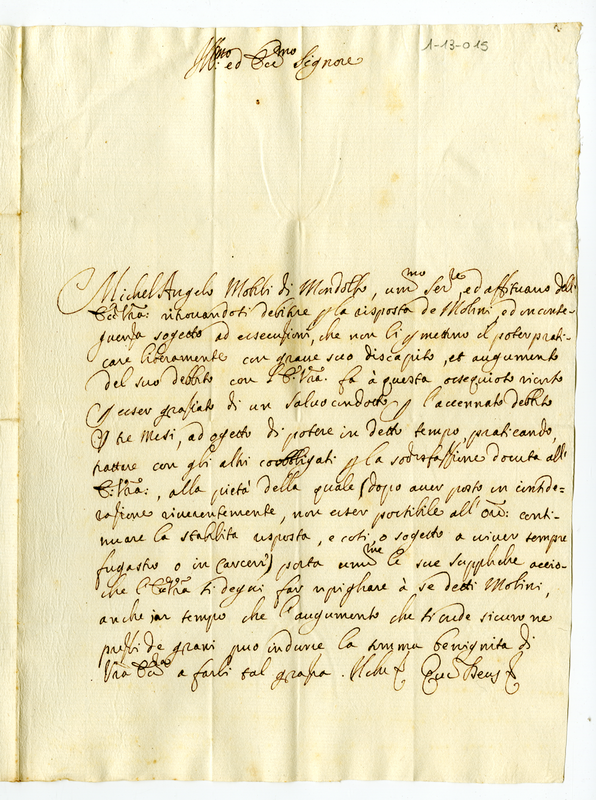 1-13-015
Ill:mo ed Ecc:mo Signore
Michel Angelo Mobili di Mondolfo, um:mo ser:re, ed affittuario dell'
Ecc:Vra: ritrovandosi debitore p la risposta de Molini, ed in conse=
guenza sogetto ad essecuzioni, che non li pmettono il poter prati=
care liberamente con grave suo discapito, et augumento
del suo debbito con l'E:Vra: fa à questa ossequioso ricorso
p esser graziato di un salvocondotto p l'accennato debbito
p tre mesi, ad ogetto di potere in detto tempo, praticando,
trattare con gli altri coobbligati p la sodisfazzione dovuta all'
E:Vra:, alla pietà della quale (dopo aver posto in conside=
razione riverentemente, non esser possibile all' Ore: conti=
nuare la stabilita risposta, e così, o sogetto a viver sempre
fugiasco o in Carceri) porta um:me le sue suppliche accio=
che l'E:Vra si degni far ripigliare à se detti Molini,
anche in tempo che l'augumento che si vede sicuro ne
prezzi de grani può indurre la somma benignità di
Vra Ecc:za a farli tal grazia. Che Quam Deus